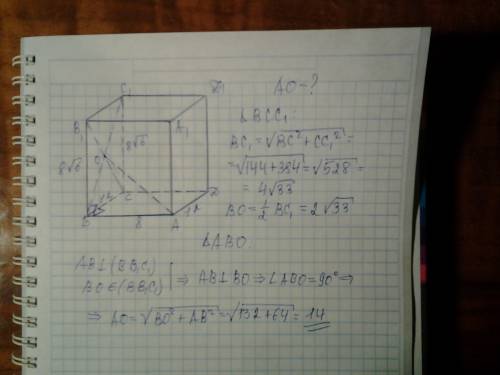 C₁ D₁
B₁ A₁
8√6 8√6
O
C D
12 12
B 8 A
AO-?
△BCC₁
BC₁=√BC²+CC₁²=
=√144+384=√528=
=4√33
BO=½BC₁=2√33
△ABO.
AB⊥(BB₁C₁)
BO∈(BB₁C₁) ⇒ AB⊥BO ⇒ ∠ABO=90° ⇒
⇒ AO=√BO²+AB²=√132+64=14